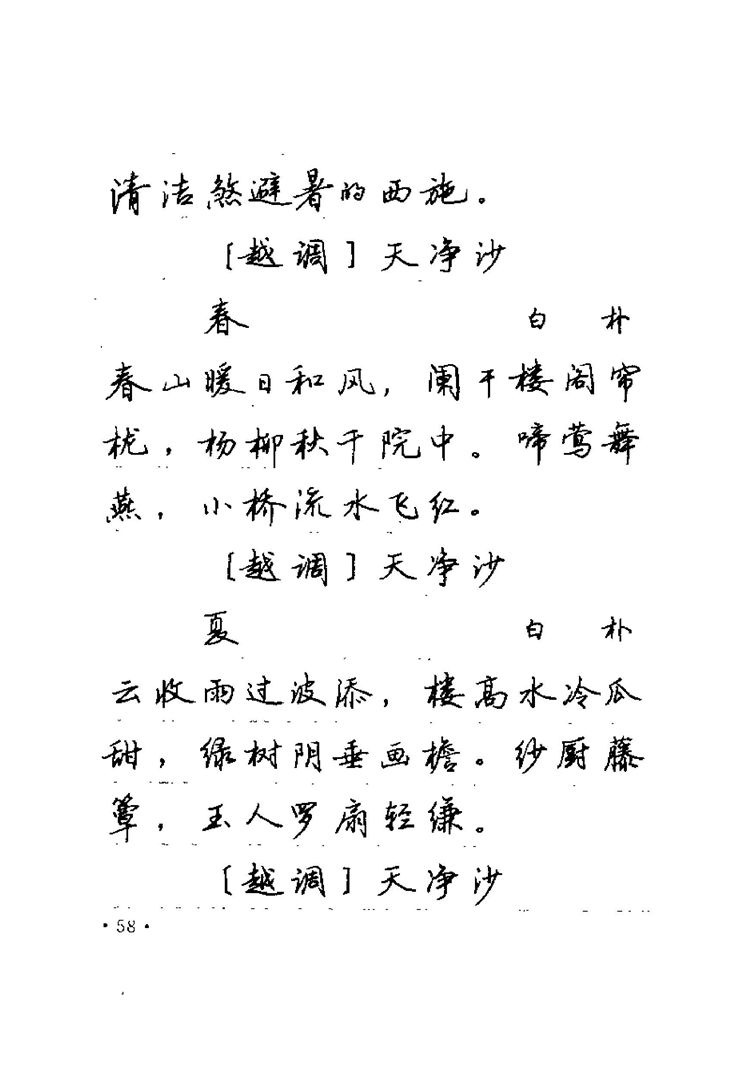 清洁煞避暑的西施。
[越调]天净沙
春 白 朴
春山暖日和风，阑干楼阁帘
栊，杨柳秋千院中。啼莺舞
燕，小桥流水飞红。
[越调]天净沙
夏 白 朴
云收雨过波添，楼高水冷瓜
甜，绿树阴垂画檐。纱厨藤
簟，玉人罗扇轻缣。
[越调]天净沙
·58·